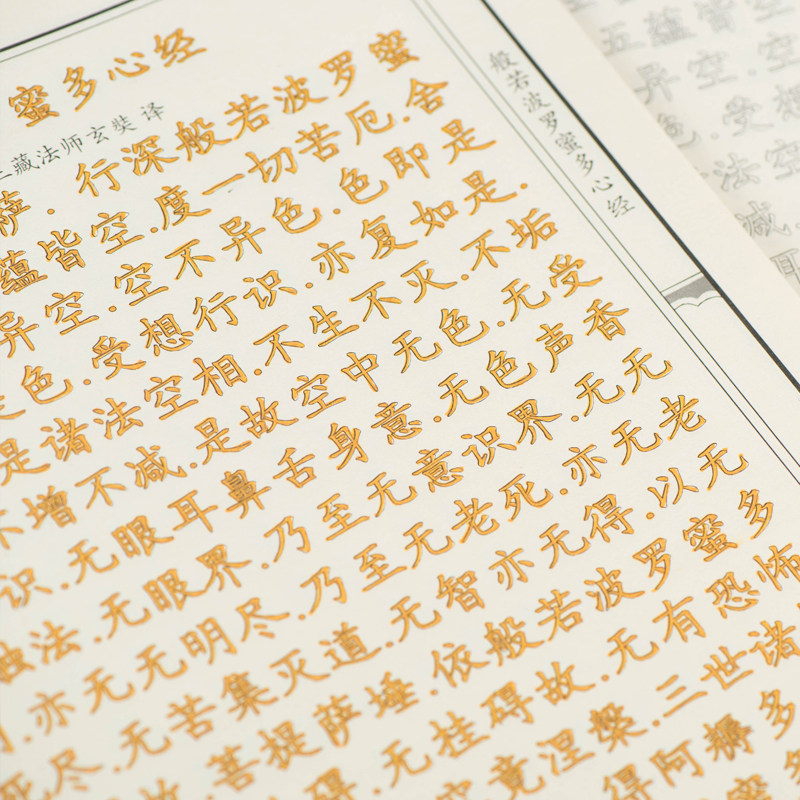 蜜多心经
三藏法师玄奘 译
萨.行深般若波罗蜜
蕴皆空.度一切苦厄.舍
异空.空不异色.色即是
色.受想行识.亦复如是.
是诸法空相.不生不灭.不垢
不增不减.是故空中无色.无受
识.无眼耳鼻舌身意.无色声香
触法.无眼界.乃至无意识界.无无
.亦无无明尽.乃至无老死.亦无老
死尽.无苦集灭道.无智亦无得.以无
故.菩提萨埵.依般若波罗蜜多
碍.无挂碍故.无有恐怖
究竟涅槃.三世诸
得阿耨多
般若波罗蜜多心经
五蕴皆空
异空.空
色.受想
法空
减
耳